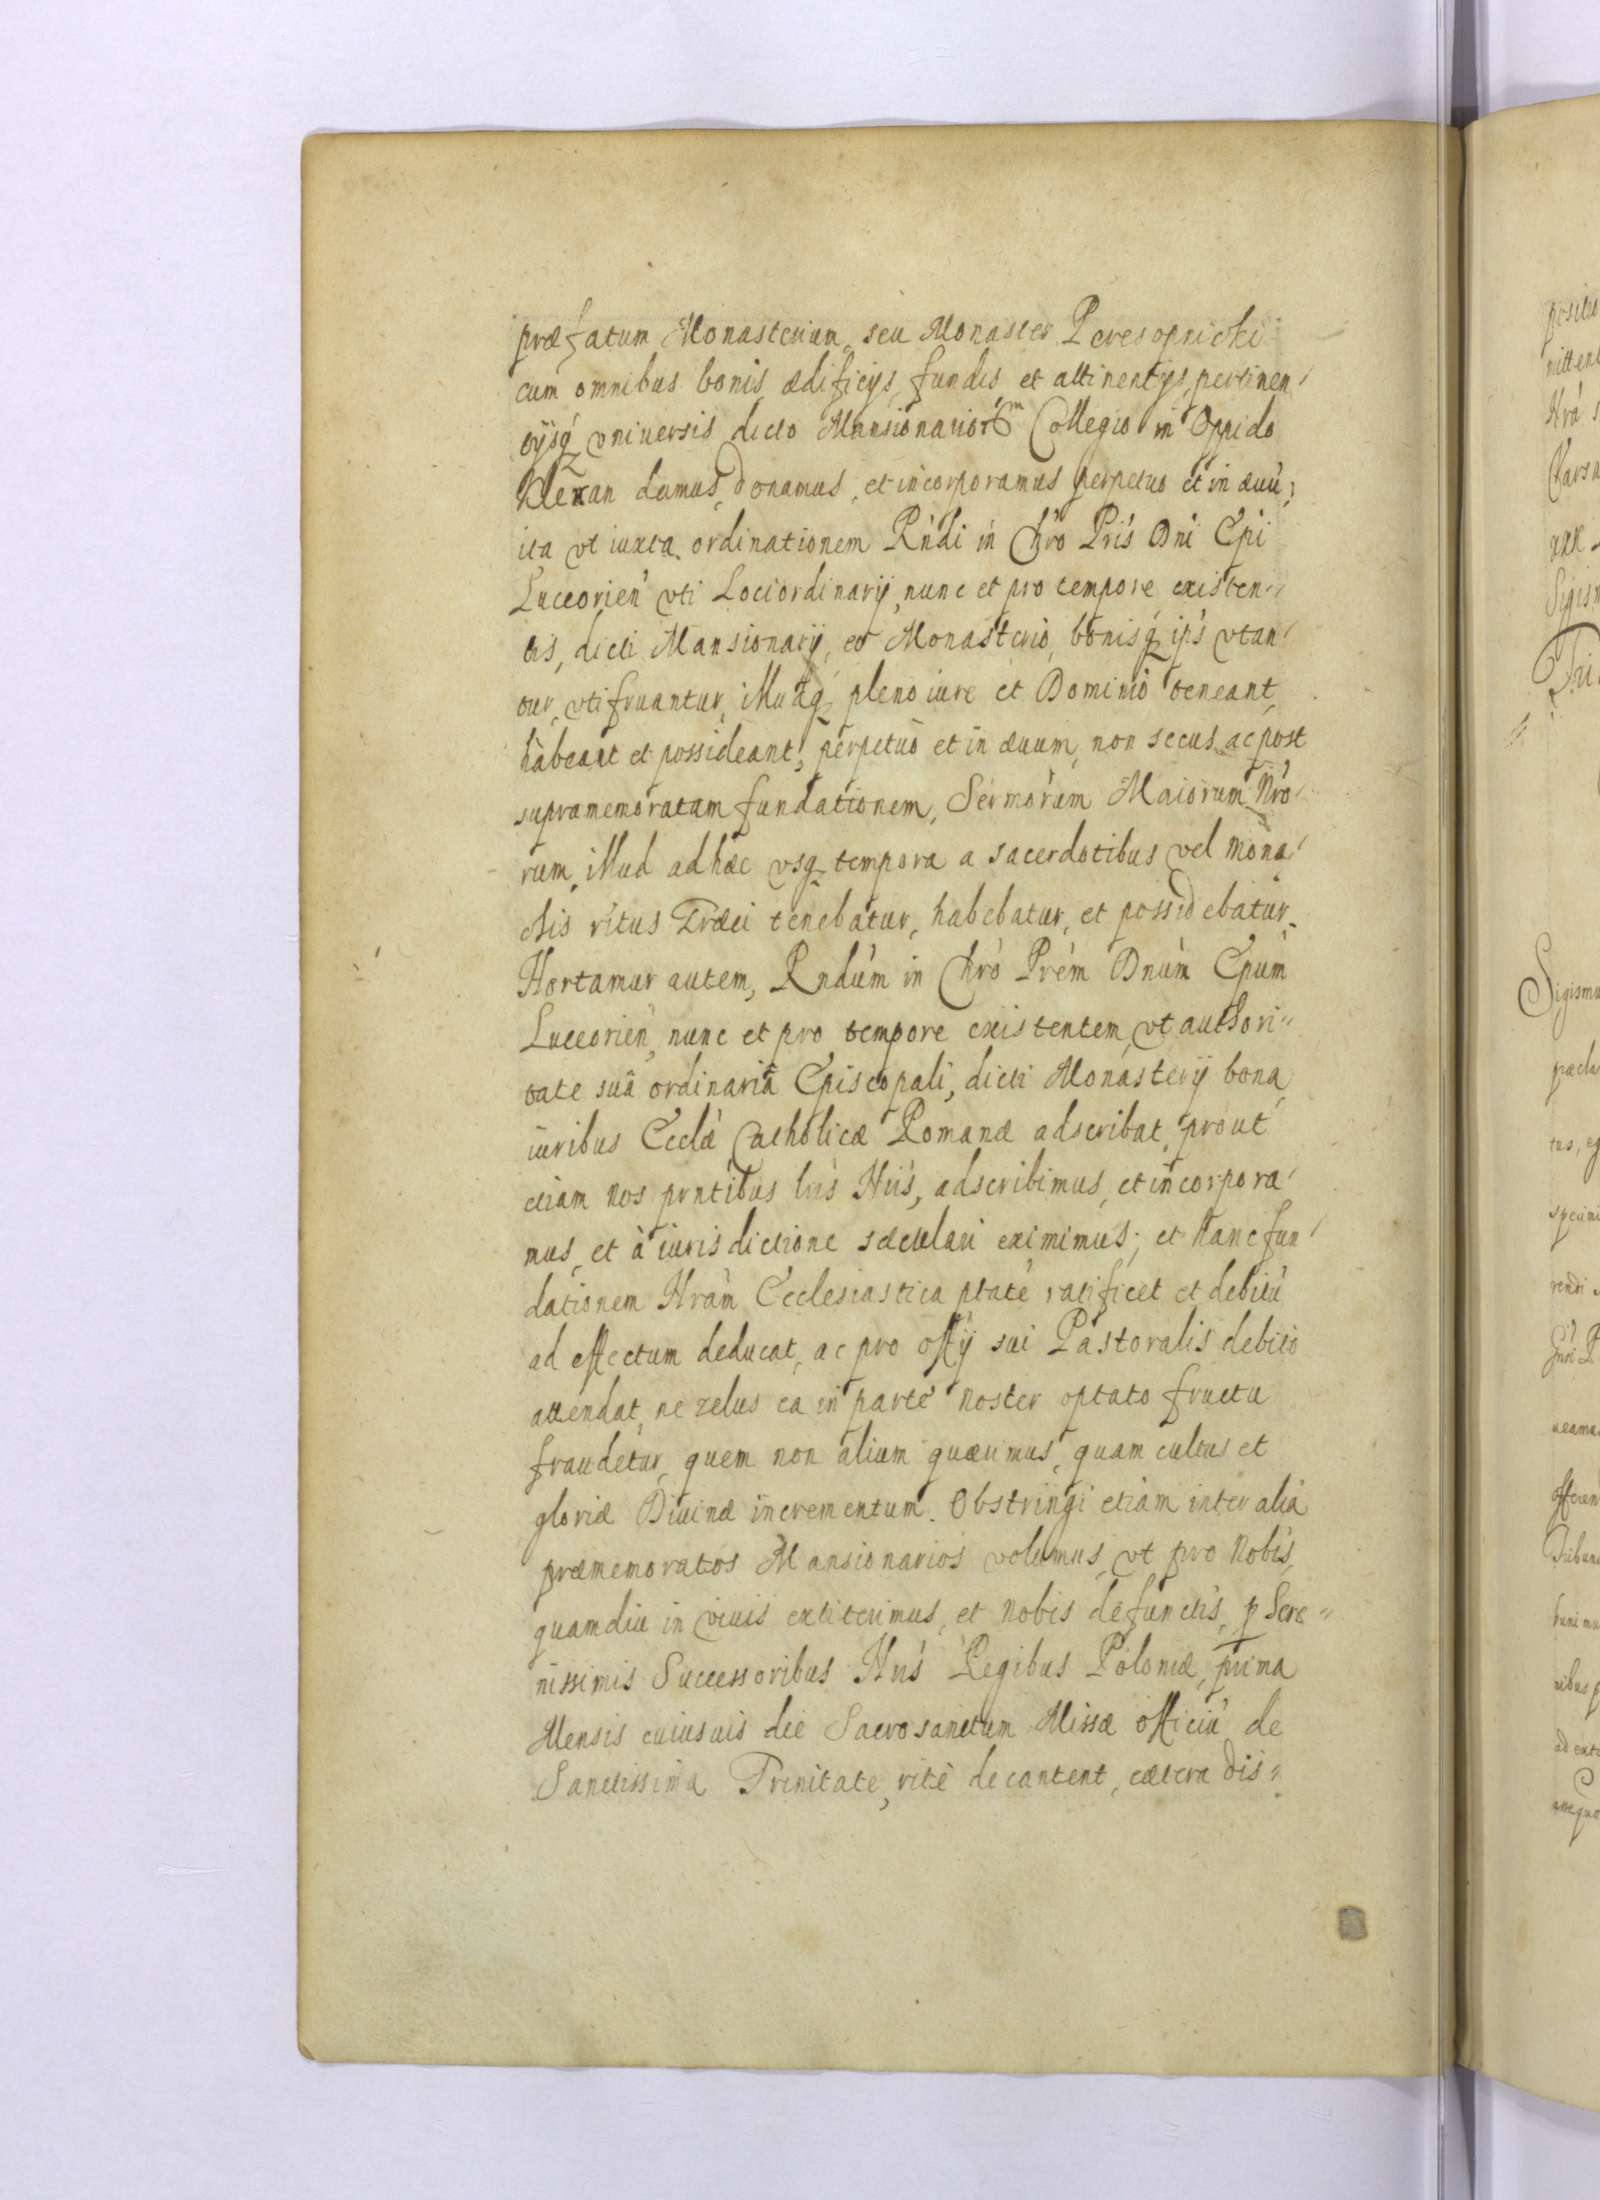 præfatum Monasterium, seu Monaster Peresopnicki
cum omnibus bonis, ædificijs, fundis et attinentijs, pertinen-
tijsq́ vniuersis dicto Mansionarior̃m Collegio in Oppido
Klewan damus, donamus, et incorporamus perpetuo et in æuũ;
ita vt iuxta ordinationem Rńdi in Chr̃o Prís Dńi Epi
Luceorień vti Lociordinarij, nunc et pro tempore existen-
tis, dicti Mansionarij, eo Monasterio, bonisq́ ip̃s vtan-
tur, vtifruantur, illudq́, pleno iure et Dominio teneant,
habeant et possideant, perpetuò et in æuum, non secus ac post
supramemoratam fundationem, Sermorum Maiorum Nr̃o-
rum, illud adhæc vsq́ tempora a sacerdotibus vel mona-
chis ritus Græci tenebatur, habebatur, et possidebatur.
Hortamur autem, Rndúm in Chr̃o Prém Dnúm Epúm
Luceorień, nunc et pro tempore existentem, vt authori-
tate suâ ordinariâ Episcopali, dicti Monasterij bona,
iuribus Ecclæ̃ Catholicæ Romanæ adscribat, prout
etiam nos prntibus lris Nr̃is, adscribimus, et incorpora-
mus, et à iurisdictione sæculari eximimus; et hanc fun-
dationem Nrám Ecclesiastica ptate ratificet et debitũ
ad effectum deducat, ac pro offij sui Pastoralis debito
attendat, ne zelus ea in parte noster optato fructu
fraudetur, quem non alium quærimus, quam cultus et
gloriæ Diuinæ incrementum. Obstringi etiam inter alia
præmemoratos Mansionarios volumus, vt pro Nobis,
quamdiu in viuis extiterimus, et nobis defunctis, p Sere-
nissimis Successoribus Nr̃is Regibus Poloniæ, prima
Mensis cuiusuis die Sacrosanctum Missæ officiũ de
Sanctissima Trinitate, ritè decantent, cætera dis-